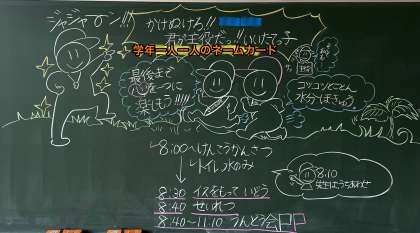 ジャジャーン!!!
かけぬけろ!!
君が主役だっ!!いいたてっ子
学年一人一人のネームカード
最後まで
心を一つに
楽しもう!!!!!
コツコツとことん
水分ほきゅう
8:00〜けんこうかんさつ
トイレ 水のみ
8:30 イスをもっていどう
8:40 せいれつ
8:40〜11:10 うんどう会
8:10
先生はうちあわせ